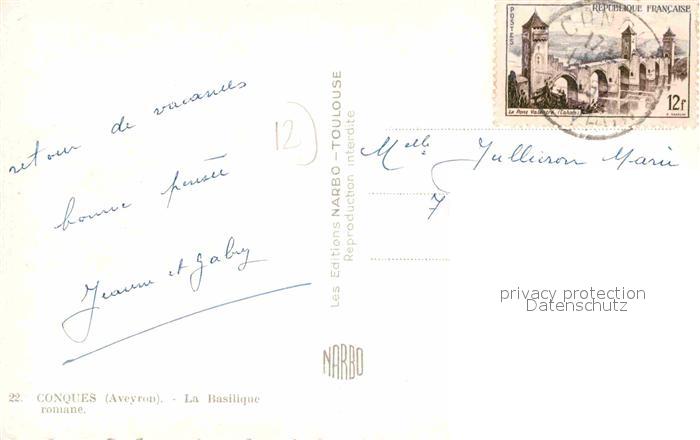 retour de vacances
bonne pensée
Jeanne et Gaby
12
22. CONQUES (Aveyron). - La Basilique
romane.
Les Editions NARBO - TOULOUSE
Reproduction interdite
NARBO
POSTES
REPUBLIQUE FRANÇAISE
Le Pont Valentré (Cahors)
12f
Melle Jullieron Marie
7
privacy protection
Datenschutz